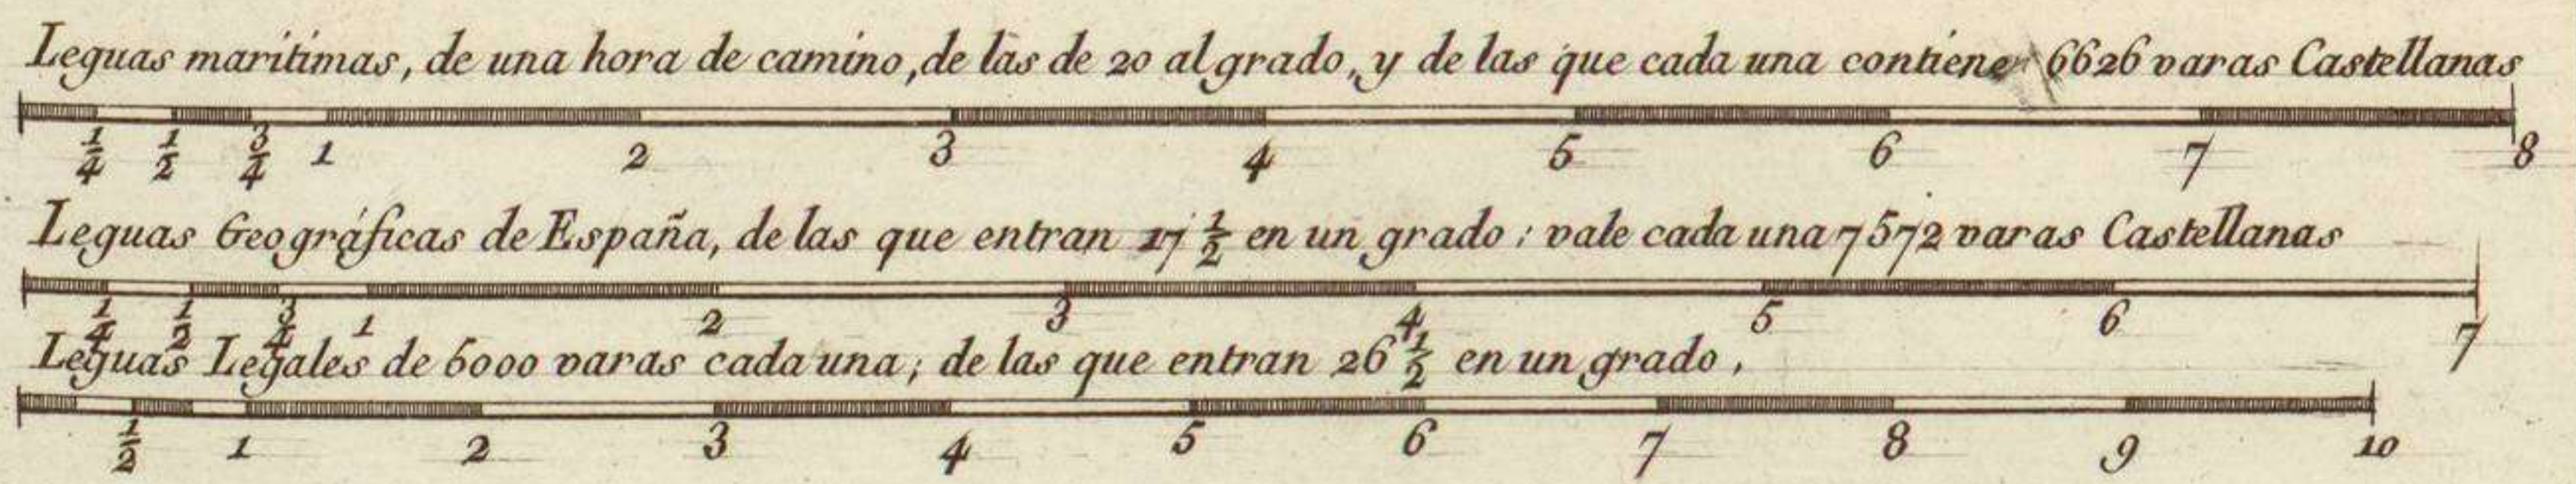 Leguas maritimas, de una hora de camino, de las de 20 al grado, y de las que cada una contiene 6626 varas Castellanas
1/4 1/2 3/4 1 2 3 4 5 6 7 8
Leguas Geográficas de España, de las que entran 17 1/2 en un grado: vale cada una 7572 varas Castellanas
1/4 1/2 3/4 1 2 3 4 5 6 7
Leguas Legales de 5000 varas cada una; de las que entran 26 1/2 en un grado.
1/2 1 2 3 4 5 6 7 8 9 10